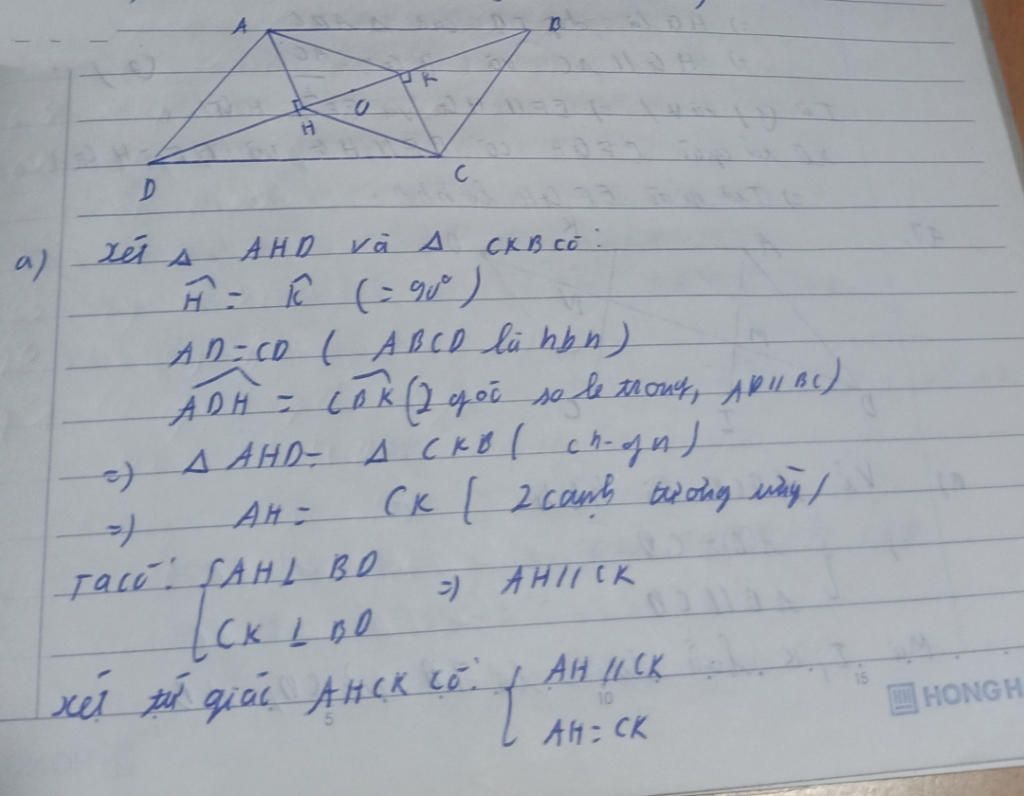 A B
K
O
H
D C
a) Xét Δ AHD và Δ CKB có:
Ĥ = K̂ (= 90°)
AD = CD ( ABCD là hbh )
ADH = CBK (2 góc so le trong, AD // BC)
=) Δ AHD = Δ CKB ( ch-gn )
=) AH = CK ( 2 cạnh tương ứng )
Ta có: { AH ⊥ BD =) AH // CK
CK ⊥ BD
Xét tứ giác AHCK có: { AH // CK
AH = CK
5 10 15
HONG H